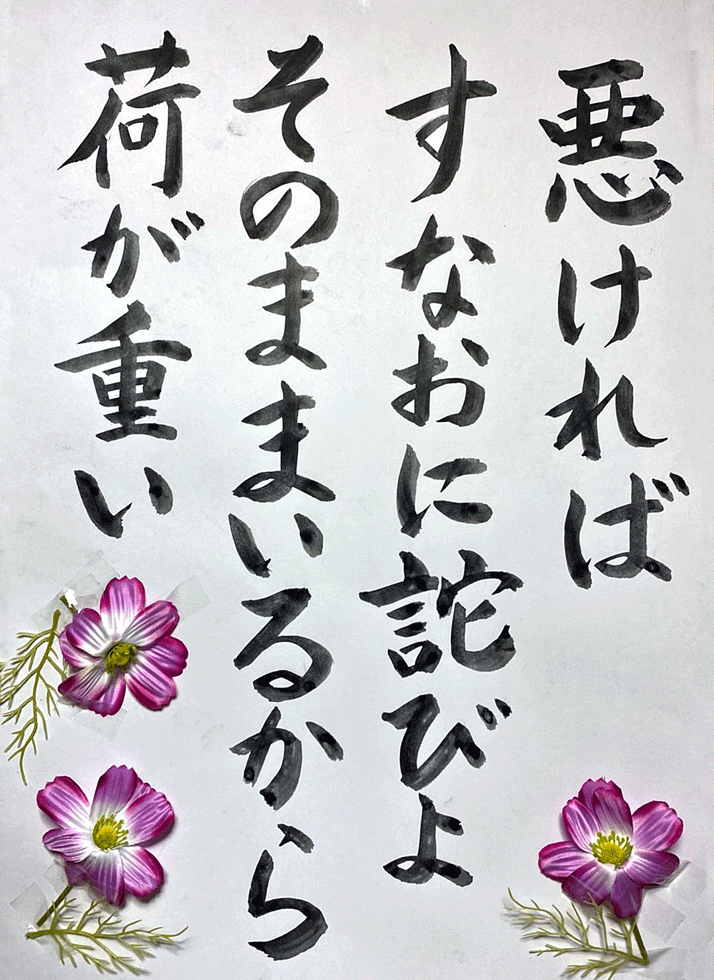 悪ければ
すなおに詑びよ
そのままいるから
荷が重い